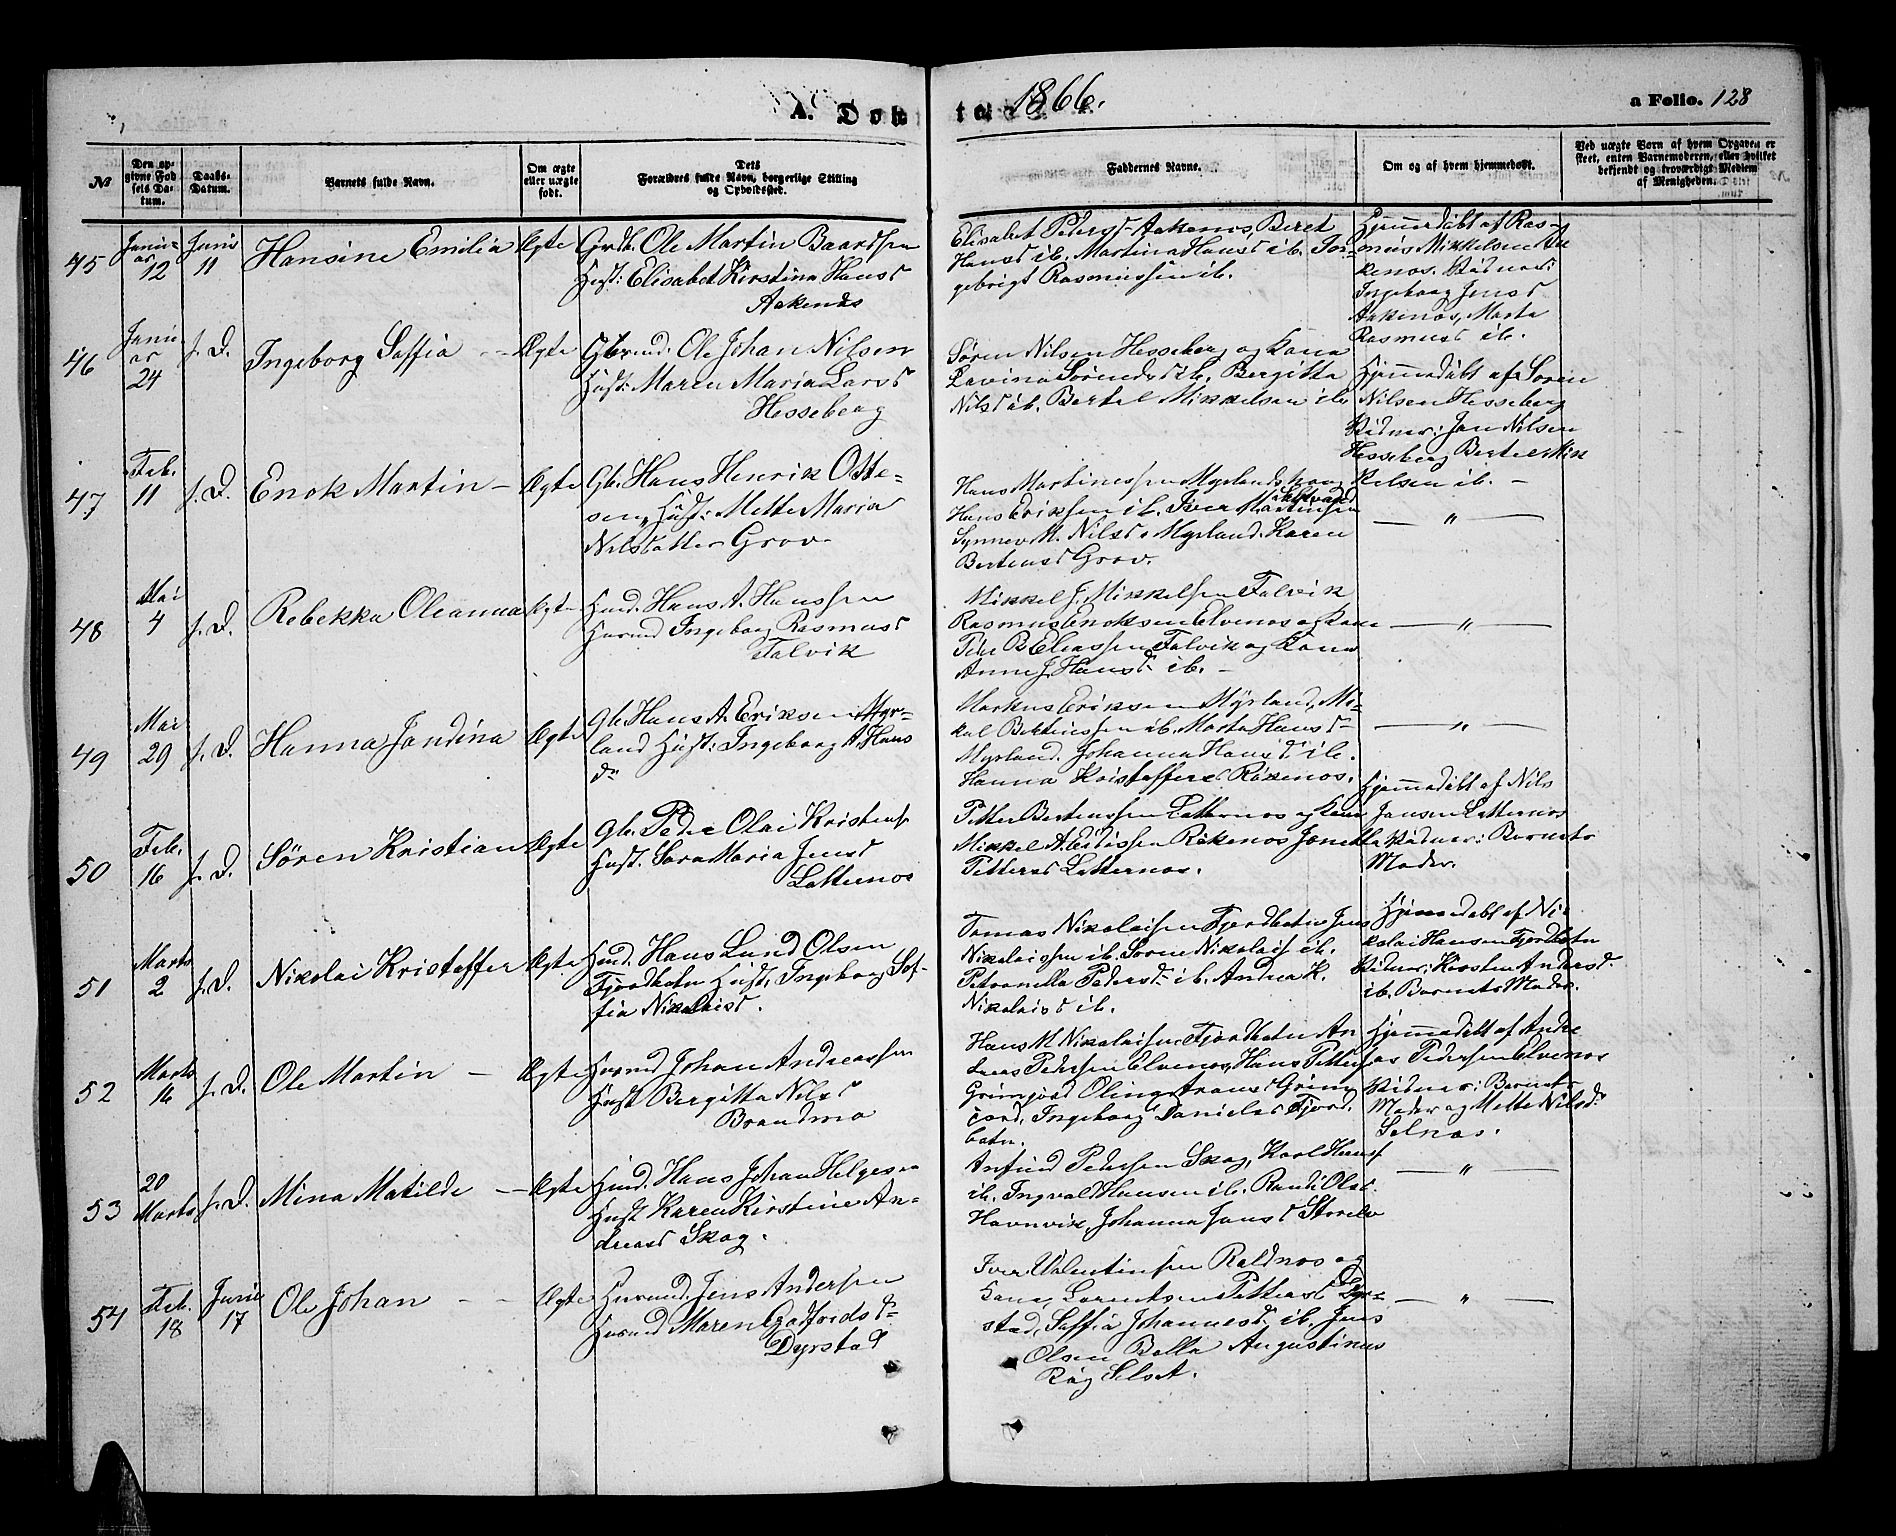 A. Døbte 1866. a Folio. 128
№
Den op-
givne Fød-
sels Da-
tum.
Daabs-
Datum.
Barnets fulde Navn.
Om ægte
eller uægte
født.
Dets
Forældres fulde Navn, borgerlige Stilling
og Opholdssted.
Faddernes Navne.
Om og af hvem hjemmedøbt.
Ved uægte Børn af hvem Opgaven er
skeet, enten Barnemoderen, eller hvilket
bekjendt og troværdigt Medlem
af Menigheden.
45
Janu-
ar
12
Juni
11
Hansine Emilia
Ægte
Grdb. Ole Martin Baardsen
Hust: Elisabet Kirstina Hansd
Aakenes
Elisabet Pedersd Aakenes, Beret
Hansd ib. Martina Hansd ib. Tor-
gebrigt Rasmussen ib.
Hjemmedøbt af Ras-
mus Mikkelsen Aa-
kenos. Vidner:
Ingeborg Jensd
Aakenos, Marta
Rasmusd ib.
46
Janu-
ar
24
s. D.
Ingeborg Saffia
Ægte
Ole Johan Nilsen
Hust: Maren Maria Larsd
Hesseberg
Søren Nilsen Hesseberg og Kona
Lavina Sørensd ib. Bergitta
Nilsd ib. Bertel Mikkelsen ib
Hjemmedøbt af Søren
Nilsen Hesseberg
Vidner: Jan Nilsen
Hesseberg Bertel Mik
kelsen ib. —
47
Feb.
11
s. D.
Enok Martin —
Ægte
Gb. Hans Henrik Otte-
sen, Hust: Mette Maria
Nilsdatter Grov
Hans Martinussen Myrlandshaug
Hans Eriksen ib. Iver Martinsen
Synnev M. Nilsd Myrland. Karen
Bertensd Grov.
— " —
48
Mai
4
s. D.
Rebekka Oleanna
Ægte
Husd. Hans A. Hanssen
Husmd Ingeborg Rasmusd
Falvik
Mikkel J. Mikkelsen Falvik
Rasmus Enoksen Elvenos og Kone
Peder B Eliassen Falvik og Kona
Anne J. Hansd ib. —
— " —
49
Mai
29
s. D.
Hanna Jandina
Ægte
Gb. Hans A. Eriksen Myr-
land Hust: Ingeborg A. Hans
dr
Markus Eriksen Myrland, Mi-
kal Bertinssen ib. Marta Hansd
Myrland. Johanna Hansd ib.
Hanna Kristoffersd Rikenos.
— " —
50
Feb.
16
s. D.
Søren Kristian
Ægte
Gb. Peder Olai Kristens.
Hust. Sara Maria Jensd
Latternos
Petter Bertenssen Latternos og Kone
Mikkel A. Rikenos Janetta
Pettersd Latternos.
Hjemmedøbt af Nils
Jansen Latternos
Vidner: Barnets
Moder.
51
Marts
2
s. D.
Nikolai Kristoffer
Ægte
Husd. Hans Lund Olsen
Fjordbotn Hust. Ingeborg Sof-
fia Nikolaisd.
Tomas Nikolaisen Fjordbotn Jens
Nikolaissen ib. Søren Nikolais ib.
Petronella Pedersd ib. Andrea K.
Nikolaisd ib.
Hjemmedøbt af Ni-
kolai Hansen Fjordbotn
Vidner: Kirsten Andersd.
ib. Barnets Moder.
52
Marts
16
s. D.
Ole Martin —
Ægte
Husmd Johan Andreassen
Hust Bergitta Nilsd
Brandmo
Hans M. Nikolaisen Fjordbotn An
dreas Pedersen Elvenos, Hans Petters
Grimsjord
jord, Ingeborg Daniels Fjord-
botn.
Hjemmedøbt af Andre
as Pedersen Elvenos
Vidner: Barnets
Moder og Mette Nilsd.
Selnos.
53
20
Marts
s. D.
Mina Matilde —
Ægte
Husd. Hans Johan Helgesen
Hust Karen Kirstine An-
dreasd Skog.
Anfind Pedersen Skog, Karl Hanss
ib. Ingvald Hansen ib. Randi Olsd.
Havnvik, Johanna Jansd Storelv
— " —
54
Feb.
18
Juni
17
Ole Johan — -
Ægte
Husmd. Jens Andersen
Husmd Maren Godfredsd
Dyrstad
Iver Valentinsen Roldnos og
Kona, Lorentsen Dyr-
stad, Saffia Johannesd, ib. Jens
Olsen Bolla Augustinus
Røg Selset.
— " —